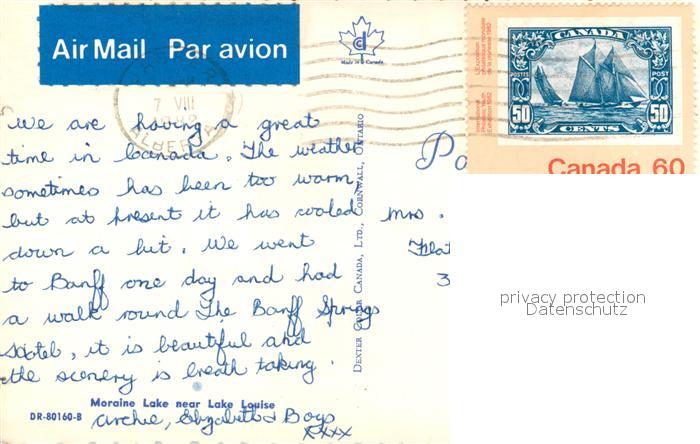 Air Mail Par avion
Made in Canada
7 VIII
1982
ALBERTA
CANADA
POSTES POST
50 CENTS 50
Canada 60
We are having a great
time in Canada. The weather
sometimes has been too warm,
but at present it has cooled
down a bit. We went
to Banff one day and had
a walk round The Banff Springs
Hotel, it is beautiful and
the scenery is breath taking.
Archie, Elizabeth & Boys
xxxx
Moraine Lake near Lake Louise
DR-80160-B
DEXTER COLOR CANADA, LTD., CORNWALL, ONTARIO
Po
Mrs.
Flat
3
privacy protection
Datenschutz